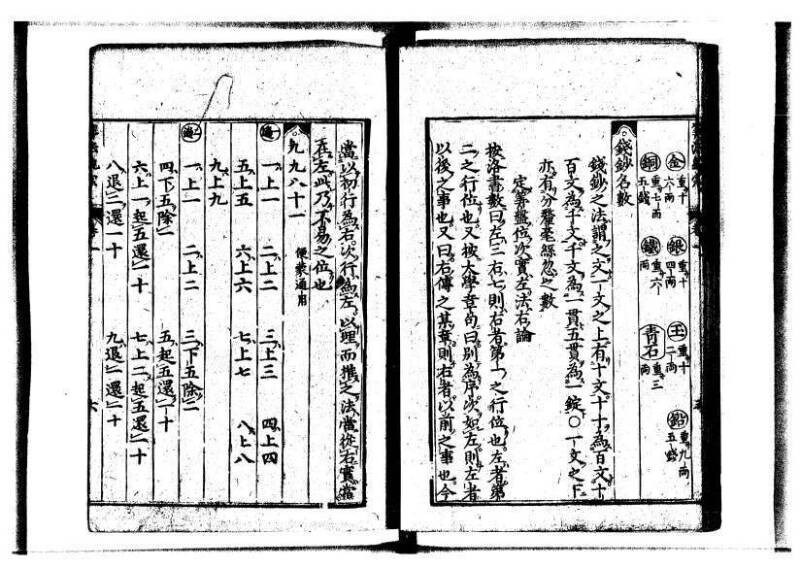 金 重十六両 銀 重十四両 玉 重十二両 鉛 重九両五錢
銅 重七両五錢 鐵 重六両 青石 重三両
錢鈔名數
錢鈔之法謂之文一文之上有十文十十為百文十
百文為千文千文為一貫五貫為一錠〇一文之下
亦有分釐毫絲忽之數
定筭盤位次實左法右論
按洛書數曰左三右七則右者第一之行位也左者第
二之行位也又按大學章句曰別為序次如左則左者
以後之事也又曰右傳之某章則右者以前之事也今
當以初行為右次行為左以理而推之法當從右實當
在左此乃不易之位也
九九八十一 便蒙通用
一遍 一上一 二上二 三上三 四上四
五上五 六上六 七上七 八上八
九上九
二遍 一上一 二上二 三下五除二
四下五除一 五起五還一十
六上一起五還一十 七上二起五還一十
八退二還一十 九退一還一十
六